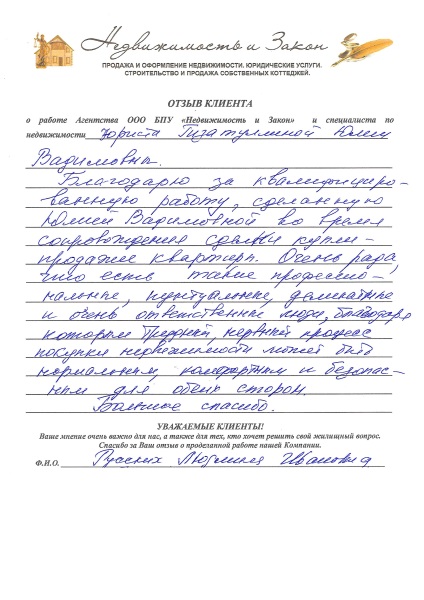 Недвижимость и Закон
ПРОДАЖА И ОФОРМЛЕНИЕ НЕДВИЖИМОСТИ. ЮРИДИЧЕСКИЕ УСЛУГИ.
СТРОИТЕЛЬСТВО И ПРОДАЖА СОБСТВЕННЫХ КОТТЕДЖЕЙ.
ОТЗЫВ КЛИЕНТА
о работе Агентства ООО БПУ «Недвижимость и Закон» и специалиста по
недвижимости Юриста Гизатуллиной Юлии
Вадимовны.
Благодарю за квалифициро-
ванную работу, сделанную
Юлией Вадимовной во время
сопровождения сделки купли-
продажи квартиры. Очень рада,
что есть такие профессио-
нальные, пунктуальные, деликатные
и очень ответственные люди, благодаря
которым трудный, нервный процесс
покупки недвижимости может быть
нормальным, комфортным и безопас-
ным для обеих сторон.
Большое спасибо.
УВАЖАЕМЫЕ КЛИЕНТЫ!
Ваше мнение очень важно для нас, а также для тех, кто хочет решить свой жилищный вопрос.
Спасибо за Ваш отзыв о проделанной работе нашей Компании.
Ф.И.О. Русских Людмила Ивановна